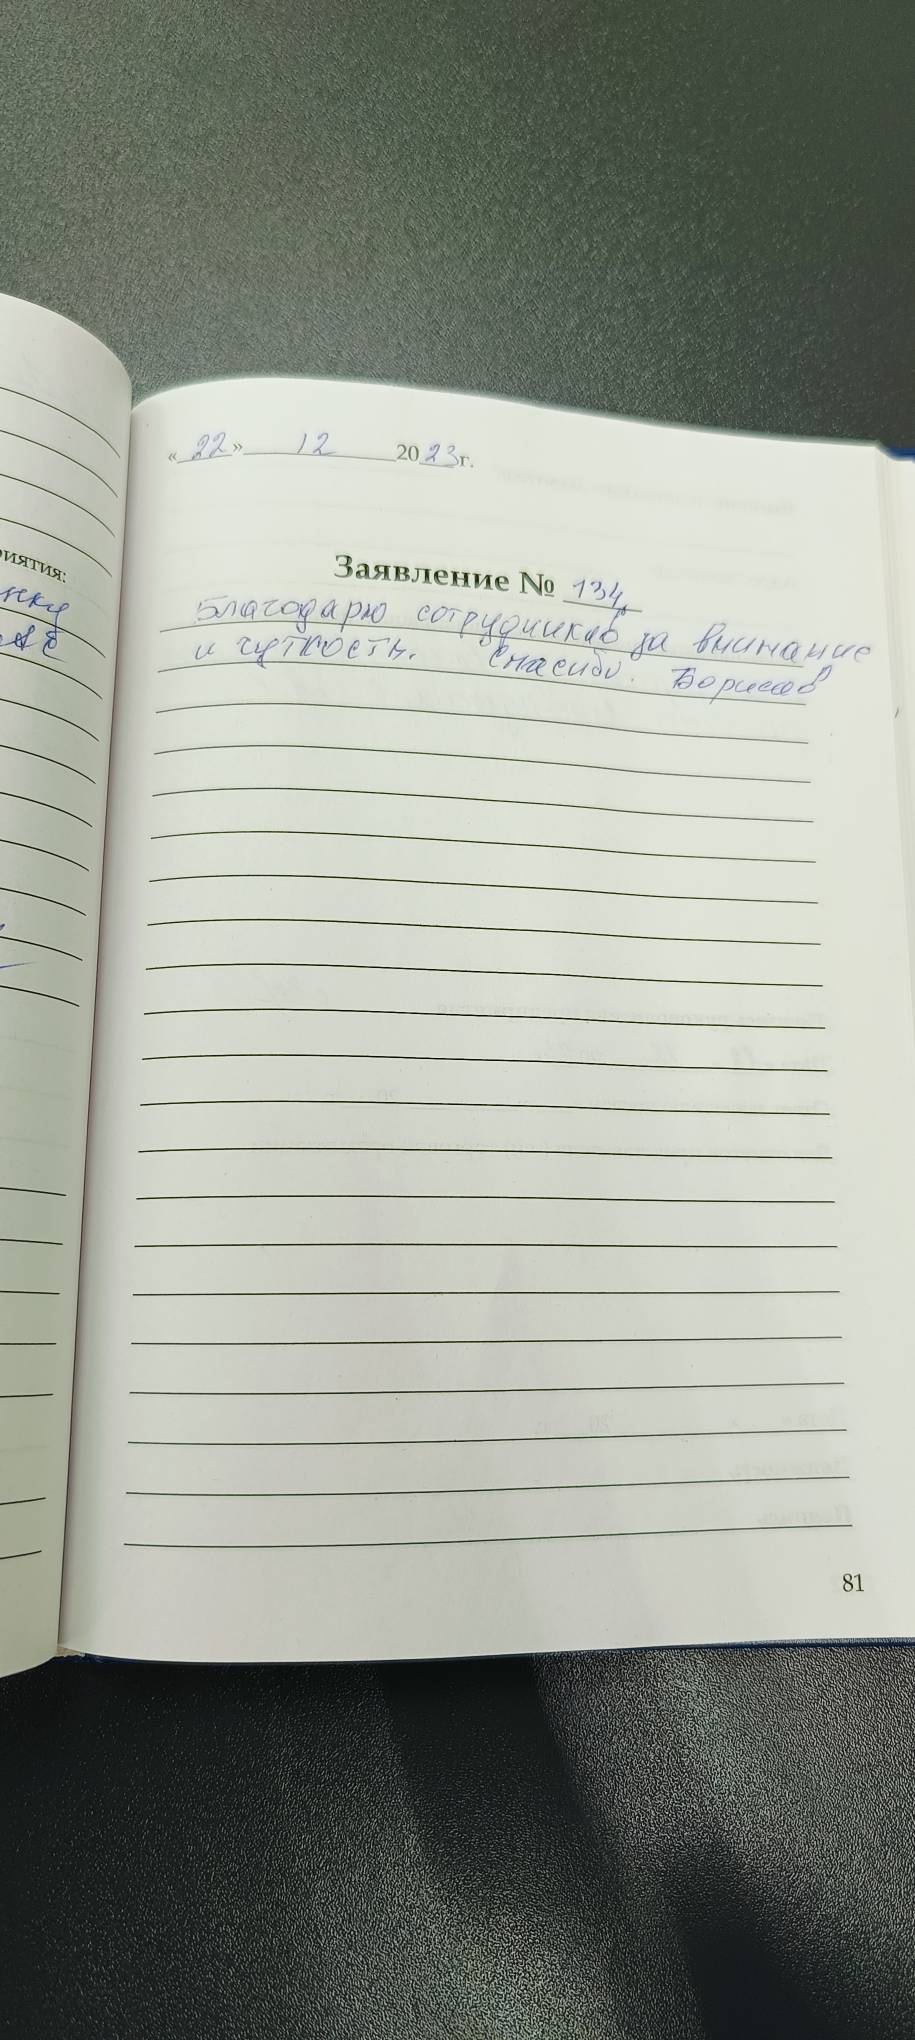 риятия:
«22» 12 2023г.
Заявление № 134
Благодарю сотрудников за внимание
и чуткость. Спасибо. Борисов
81